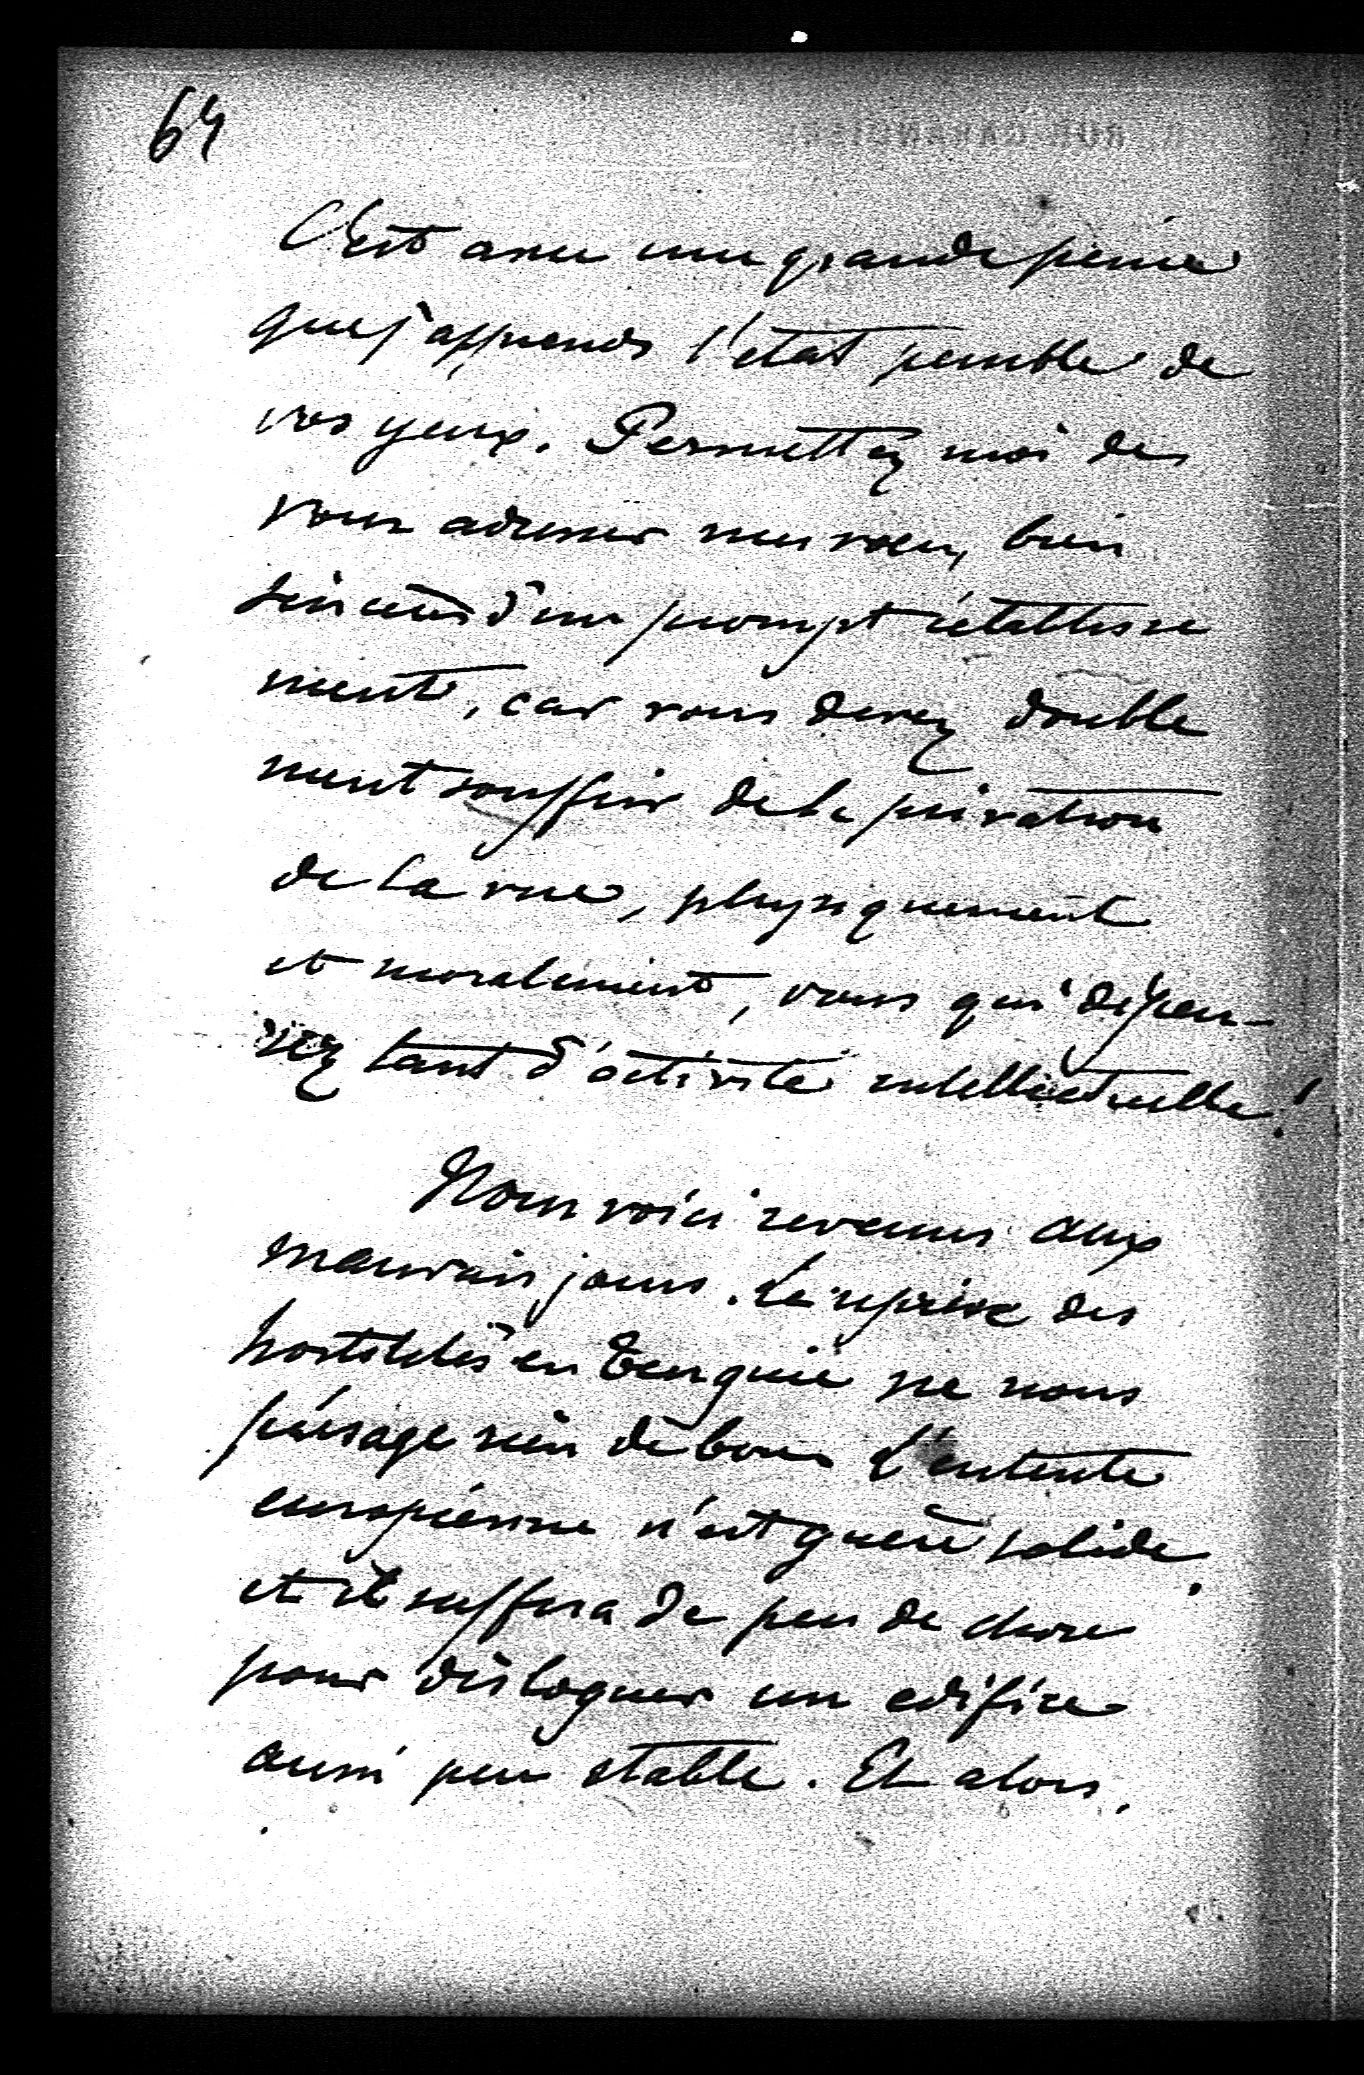 64
C'est avec une grande peine
que j'apprends l'état penible de
vos yeux. Permettez moi de
vous adresser mes voeux, bien
sincères d'un prompt rétablisse
ment, car vous devez double
ment souffrir de la privation
de la vue, physiquement
et moralement, vous qui dépen-
sez tant d'activité intellectuelle !
Nous voici revenus aux
mauvais jours. La reprise des
hostilités en Turquie ne nous
présage rien de bon. L'entente
européenne n'est guère solide
et il suffira de peu de chose
pour disloquer un edifice
aussi peu stable. Et alors.